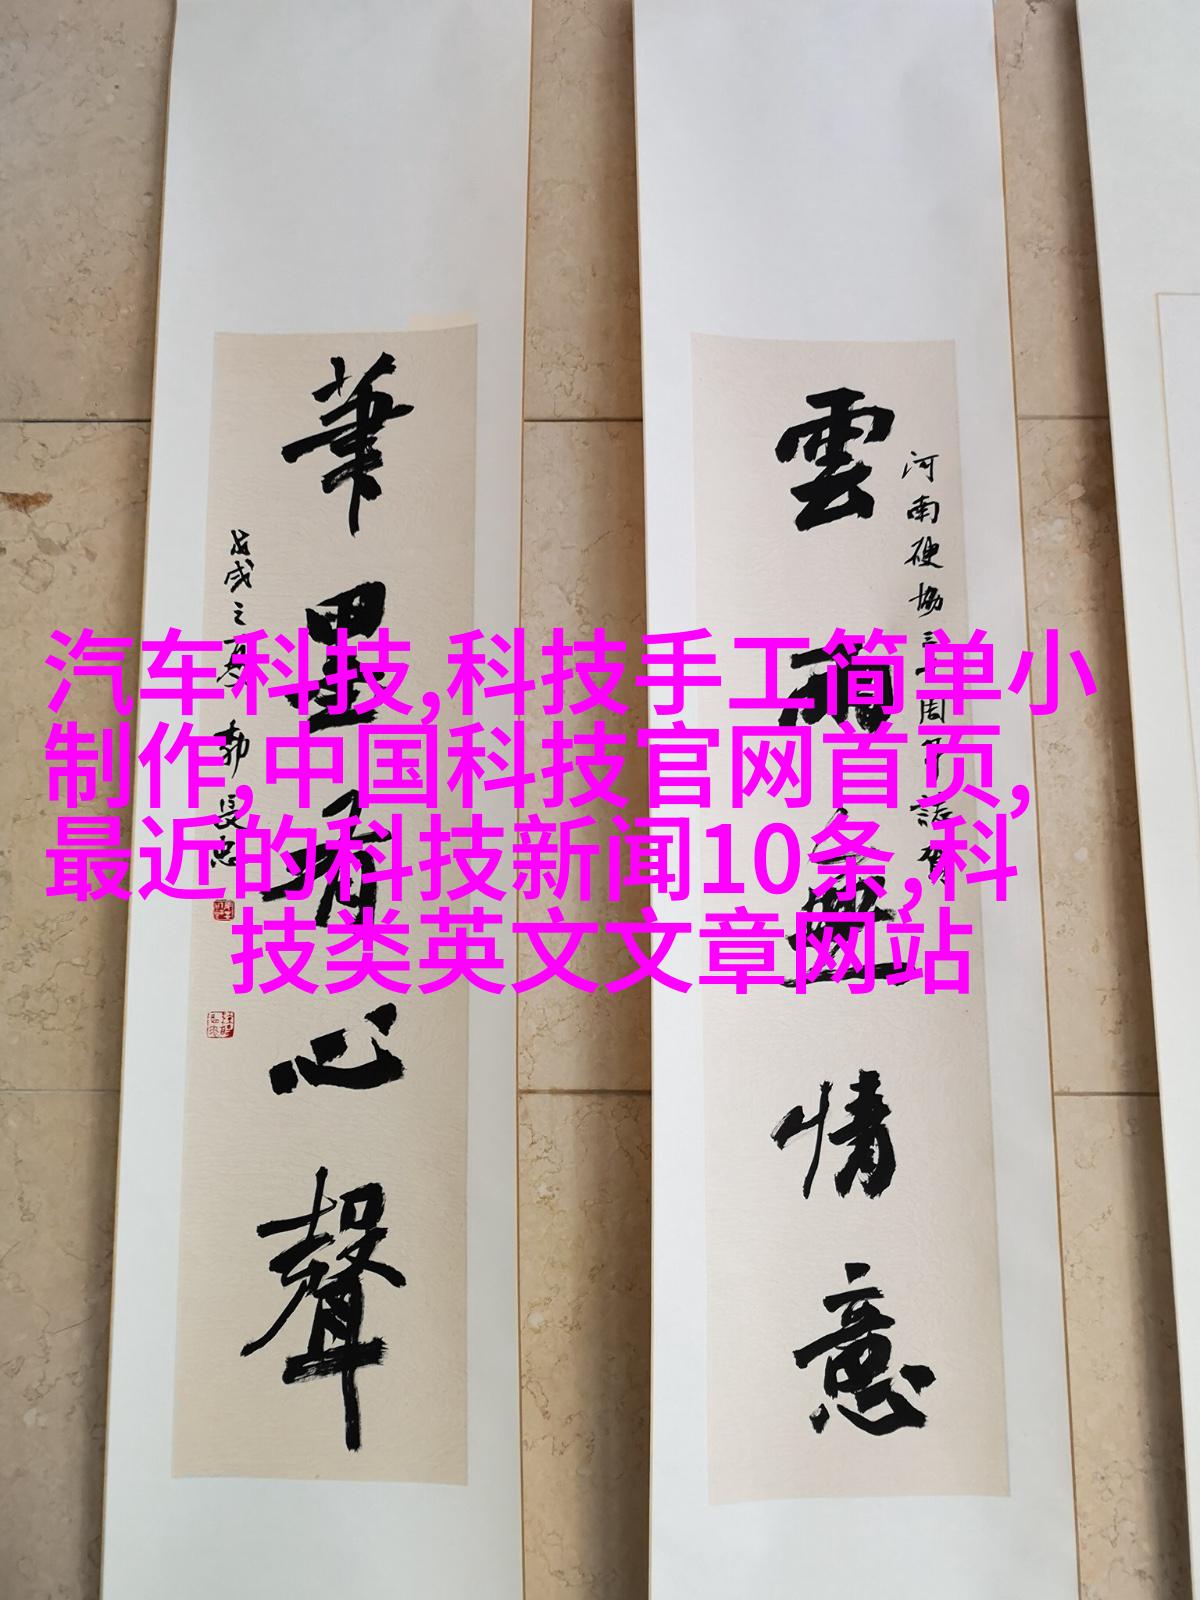 汽车科技,科技手工简单小
制作,中国科技官网首页,
最近的科技新闻10条,科
技类英文文章网站
河南硬協三周年誌賀
雲雨無情意
筆墨有心聲
戊戌之夏